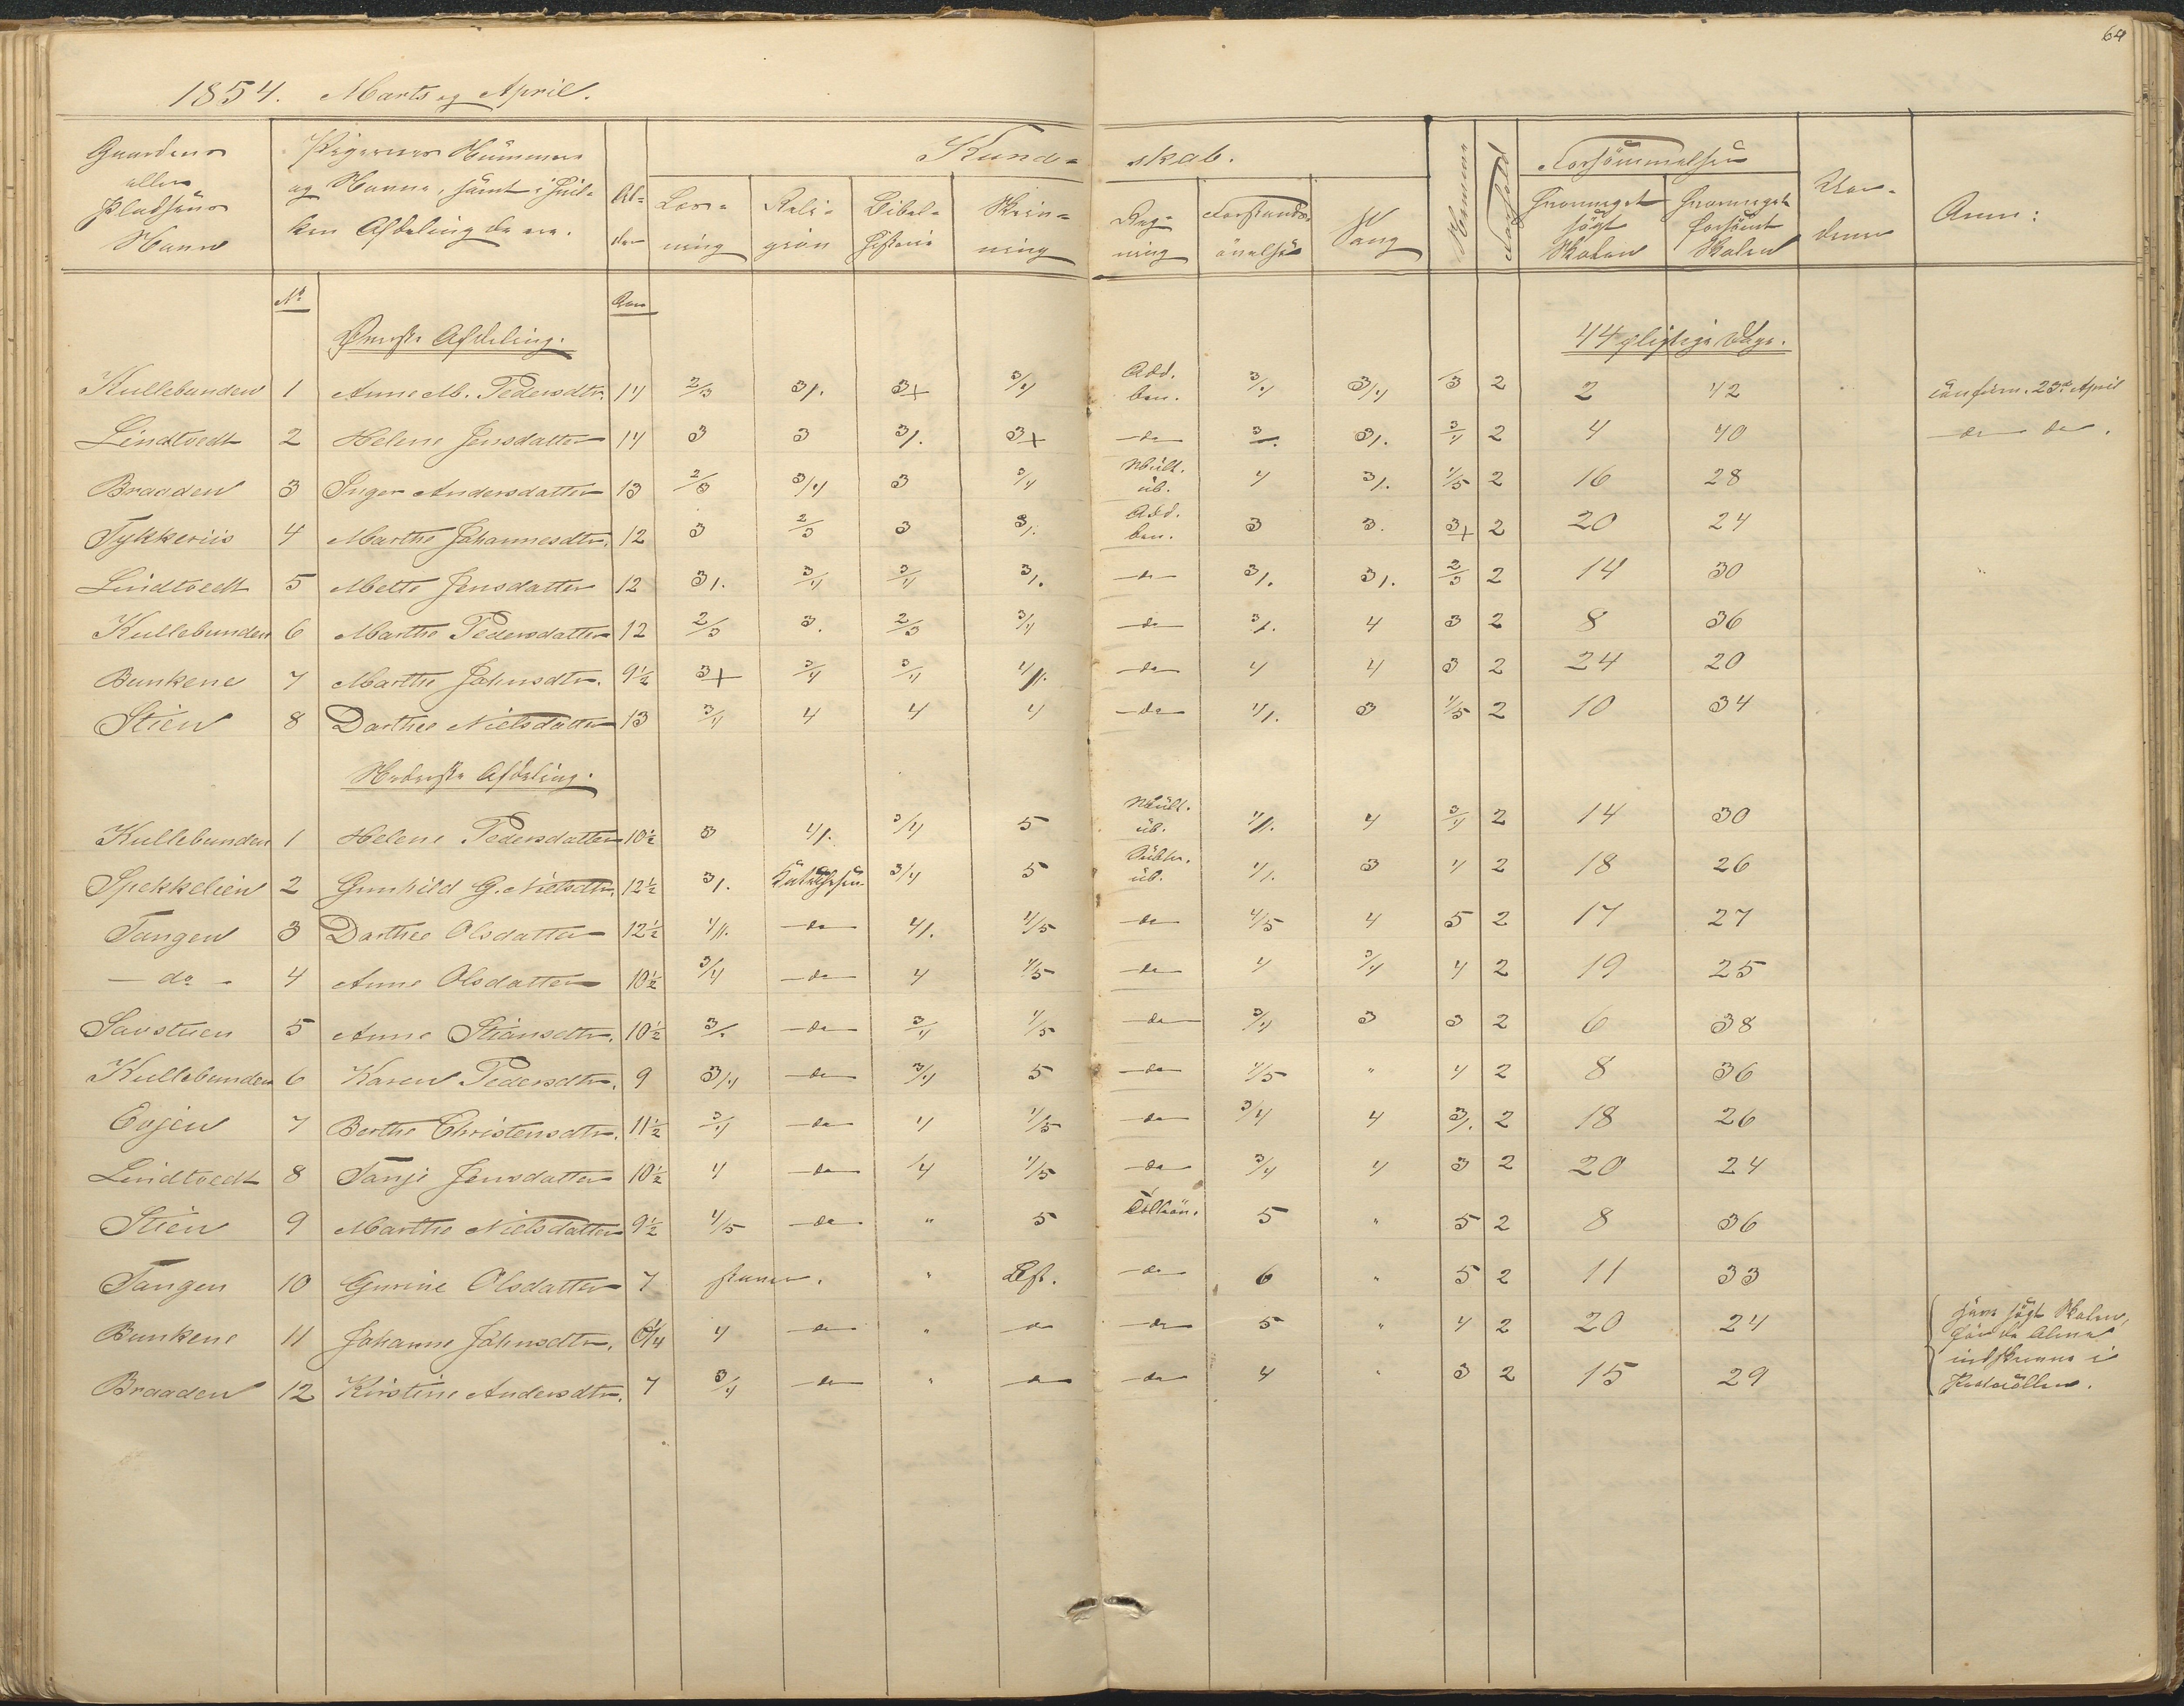 64
1854. Marts og April.
Gaardens eller Pladsens Navn | Pigernes Nummer og Navne, samt i hvilken Afdeling de ere. | Alder | Kundskab. | Nemme | Forhold | Forsömmelser
Læsning | Religion | Bibelhistorie | Skrivning | Regning | Forstandsövelser | Sang | hvormeget søgt Skolen | hvormeget forsömt Skolen | Anm:
No | Aar
Øverste Afdeling. | 44 pligtige Dage.
Kullebunden 1 Anne M. Pedersdtr. 14 2/3 3/. 3+ 3/4 Add. ben. 3/4 3/4 3 2 2 42 confirm. 23de April
Lindtvedt 2 Helene Jensdatter 14 3 3 3/. 3+ do 3/. 3/. 3/4 2 4 40 do do.
Braaden 3 Inger Andersdatter 13 2/3 3/4 3 3/4 Mult. üb. 4 3/. 4/5 2 16 28
Tykkeriis 4 Marthe Johannesdtr. 12 3 2/3 3 3/. Add. ben. 3 3. 3+ 2 20 24
Lindtvedt 5 Mette Jensdatter 12 3/. 3/4 3/4 3/. do 3/. 3/. 2/3 2 14 30
Kullebunden 6 Marthe Pedersdatter 12 2/3 3. 2/3 3/4 do 3/. 4 3 2 8 36
Bunkene 7 Marthe Johnsdtr. 9½ 3+ 3/4 3/4 4/. do 4 4 3 2 24 20
Stien 8 Darthee Nielsdatter 13 3/4 4 4 4 do 4/. 3 4/5 2 10 34
Nederste Afdeling.
Kullebunden 1 Helene Pedersdatter 10½ 3 4/. 3/4 5 Mult. üb. 4/. 4 3/4 2 14 30
Spekkelien 2 Gunhild G. Nielsdtr. 12½ 3/. 3/4 5 Subtr. üb. 4/. 3 4 2 18 26
Tangen 3 Darthee Olsdatter 12½ 4/. do 4/. 4/5 do 4/5 4 5 2 17 27
do 4 Anne Olsdatter 10½ 3/4 do 4 4/5 do 4 3/4 4 2 19 25
Savstuen 5 Anne Stiansdtr. 10½ 3/. do 3/4 4/5 do 3/4 3 3 2 6 38
Kullebunden 6 Karen Pedersdtr. 9 3/4 do 3/4 5 do 4/5 " 4 2 8 36
Evjen 7 Berthe Christensdtr. 11½ 3/4 do 4 4/5 do 3/4 4 3/. 2 18 26
Lindtvedt 8 Tanje Jensdatter 10½ 4 do 4 4/5 do 3/4 4 3 2 20 24
Stien 9 Marthe Nielsdatter 9½ 4/5 do " 5 5 " 5 2 8 36
Tangen 10 Gurine Olsdatter 7 staver. " do 6 " 5 2 11 33
Bunkene 11 Johanne Johnsdtr. 4 do " do do 5 " 4 2 20 24
Braaden 12 Kirstine Andersdtr. 7 3/4 do " do do 4 " 3 2 15 29
have søgt Skolen,
før de bleve
indskrevne i
Protocollen.